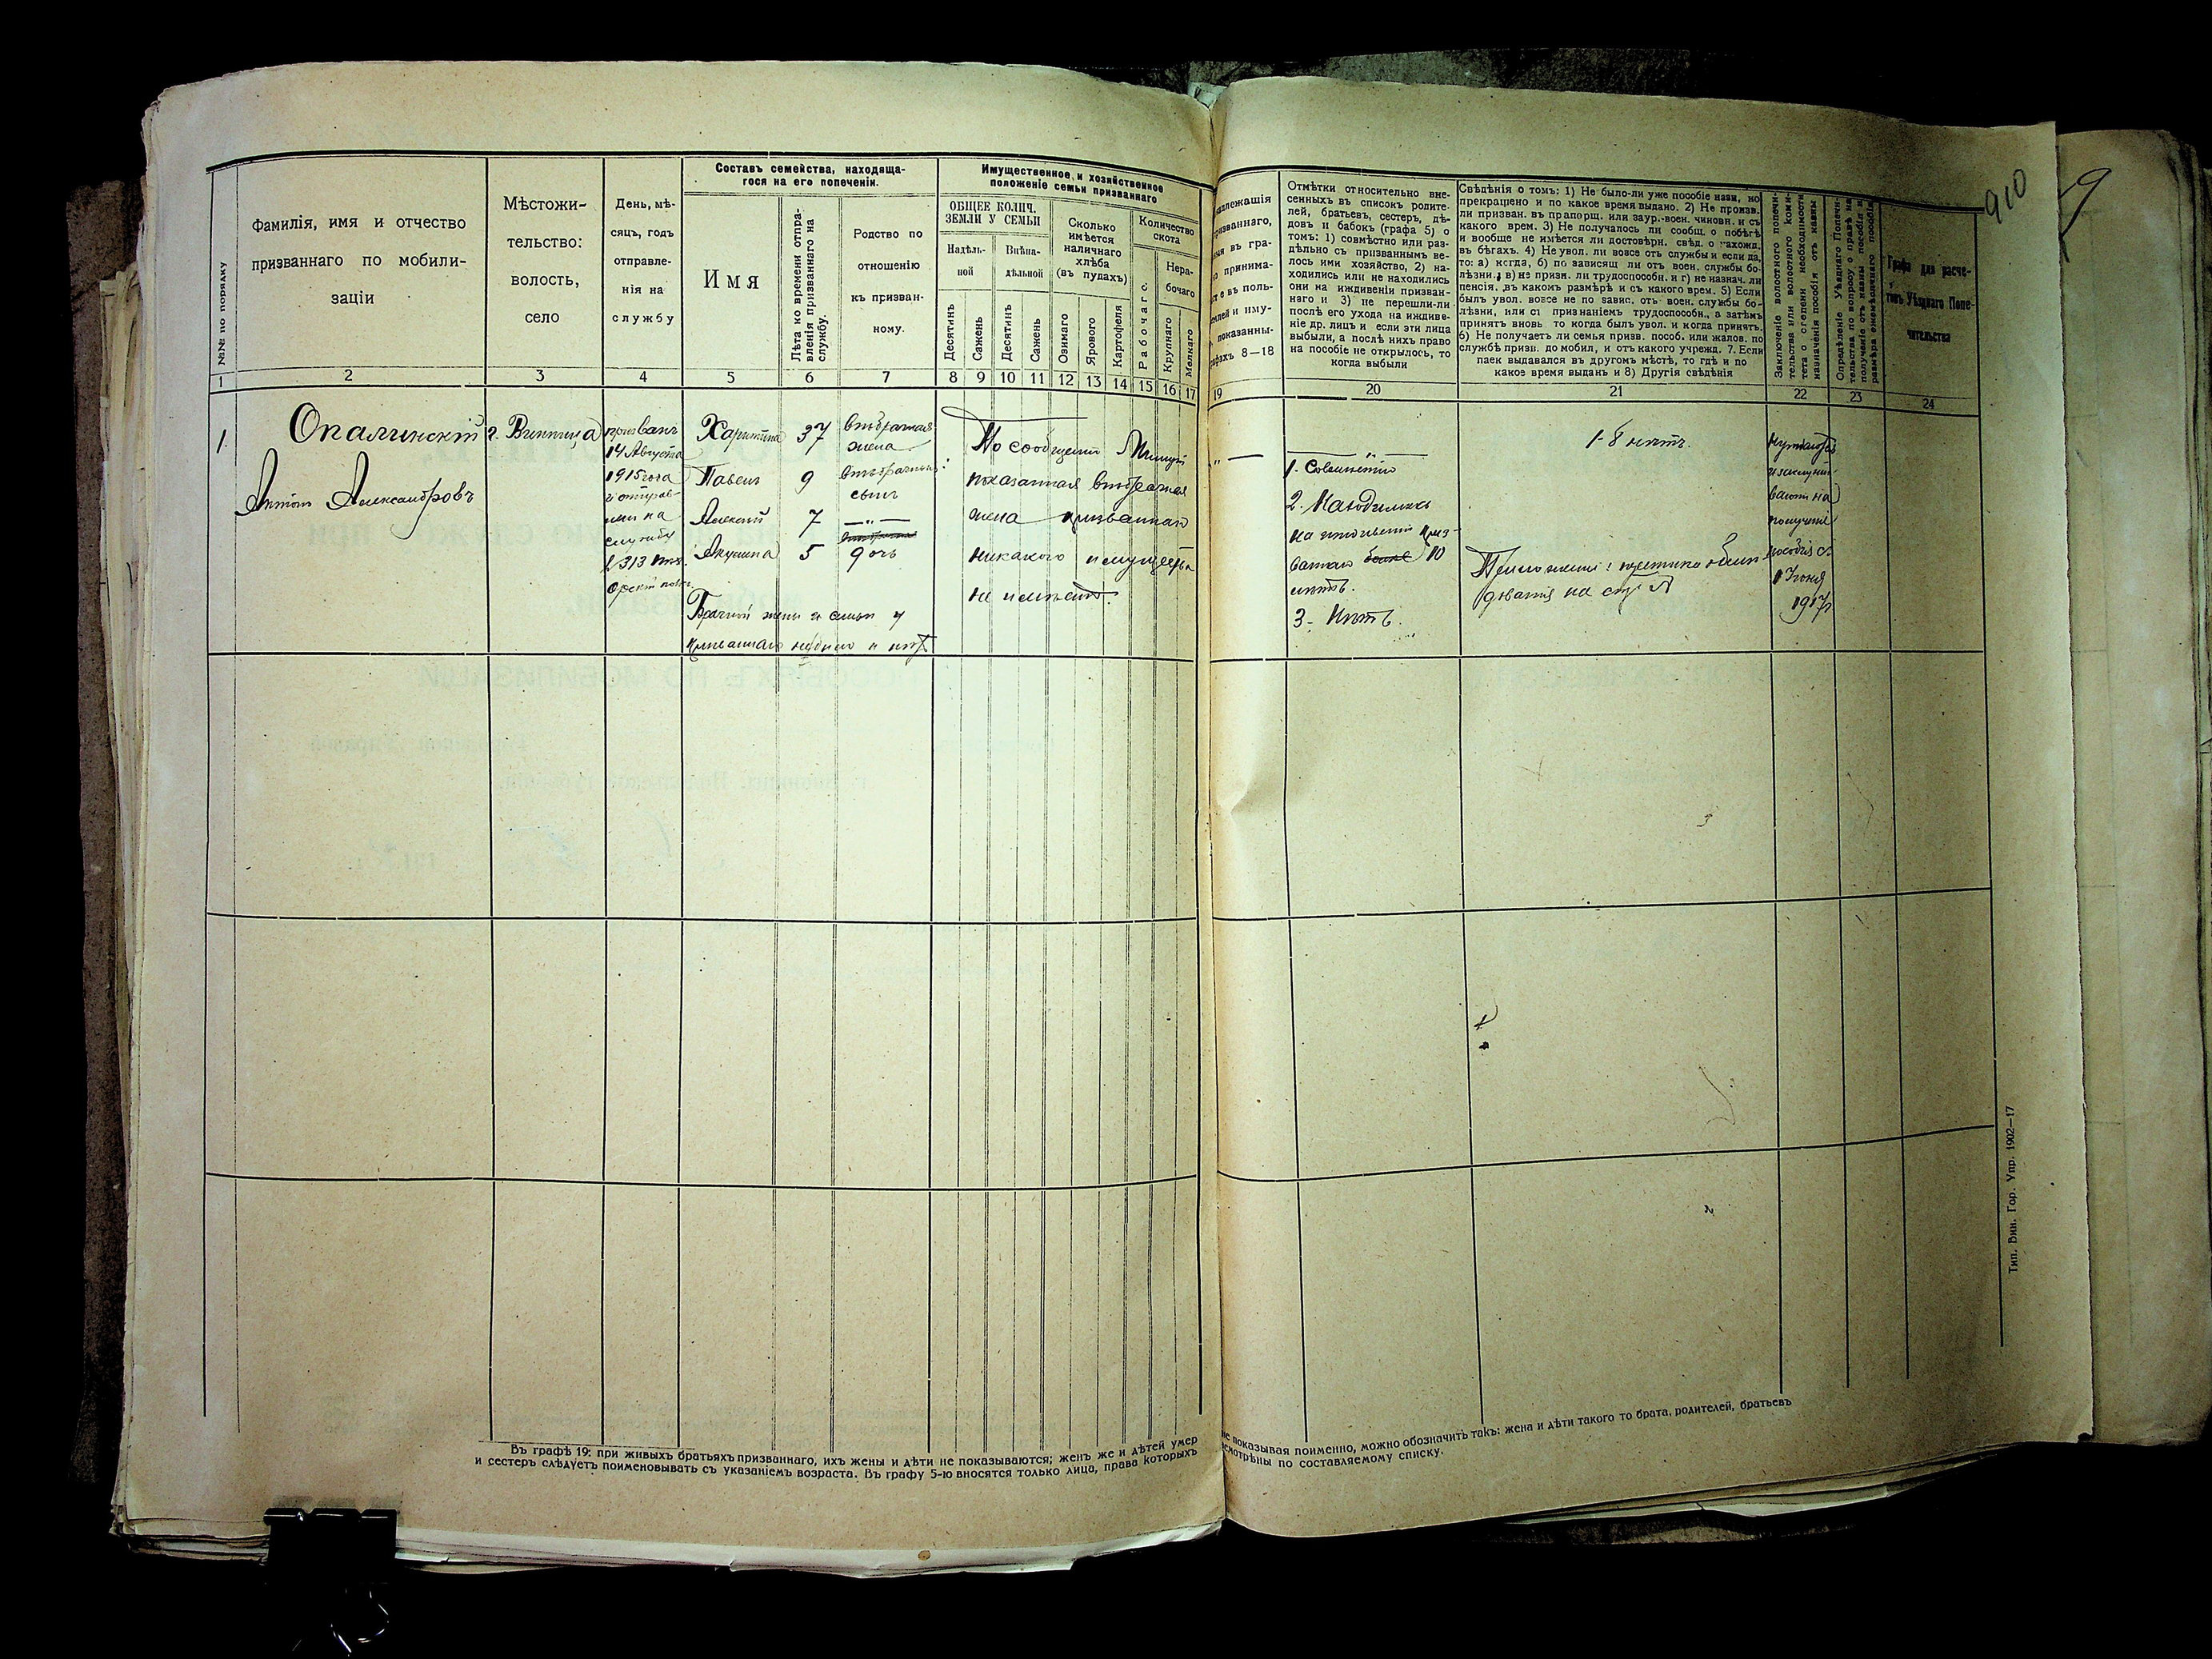 910
9
№№ по порядку
Фамилія, имя и отчество
призваннаго по мобили-
заціи
Мѣстожи-
тельство:
волость,
село
День, мѣ-
сяцъ, годъ
отправле-
нія на
службу
Составъ семейства, находяща-
гося на его попеченіи.
Имя
Лѣта ко времени отпра-
вленія призваннаго на
службу.
Родство по
отношенію
къ призван-
ному.
Имущественное и хозяйственное
положеніе семьи призваннаго
ОБЩЕЕ КОЛИЧ.
ЗЕМЛИ У СЕМЬИ
Надѣль-
ной
Внѣна-
дѣльной
Десятинъ
Сажень
Десятинъ
Сажень
Сколько
имѣется
наличнаго
хлѣба
(въ пудахъ)
Озимаго
Ярового
Картофеля
Количество
скота
Рабочаго.
Нера-
бочаго
Крупнаго
Мелкаго
длежащія
призваннаго,
въ гра-
принима-
въ поль-
землей и иму-
показанны-
графахъ 8—18
Отмѣтки относительно вне-
сенныхъ въ список родите-
лей, братьевъ, сестеръ, дѣ-
довъ и бабокъ (графа 5) о
томъ: 1) совмѣстно или раз-
дѣльно съ призваннымъ ве-
лось ими хозяйство, 2) на-
ходились или не находились
они на иждивеніи призван-
наго и 3) не перешли-ли
послѣ его ухода на иждиве-
ніе др. лицъ и если эти лица
выбыли, а послѣ нихъ право
на пособіе не открылось, то
когда выбыли
Свѣдѣнія о томъ: 1) Не было-ли уже пособіе назн, но
прекращено и по какое время выдано. 2) Не произв.
ли призван. въ прапорщ. или заур.-воен. чиновн. и съ
какого врем. 3) Не получалось ли сообщ. о побѣгѣ
и вообще не имѣется ли достовѣрн. свѣд. о нахожд.
въ бѣгахъ. 4) Не увол. ли вовсе отъ службы и если да,
то: а) когда, б) по зависящ ли отъ воен. службы бо-
лѣзни, в) не призн. ли трудоспособн. и г) не назнач. ли
пенсія, въ какомъ размѣрѣ и съ какого врем. 5) Если
былъ увол. вовсе не по завис. отъ воен. службы бо-
лѣзни, или съ признаніемъ трудоспособн., а затѣмъ
принятъ вновь то когда былъ увол. и когда принятъ.
6) Не получаетъ ли семья призв. пособ. или жалов. по
службѣ призв. до мобил, и отъ какого учрежд. 7. Если
паек выдавался въ другомъ мѣстѣ, то гдѣ и по
какое время выданъ и 8) Другія свѣдѣнія
Заключеніе волостного попечи-
тельства или волостного коми-
тета о степени необходимости
назначенія пособія отъ казны
Опредѣленіе Уѣзднаго Попечи-
тельства по вопросу о правѣ на
полученіе отъ казны пособія и
размѣра ежемѣсячнаго пособія
Графа для расче-
товъ Уѣзднаго Попе-
чительства
1 2 3 4 5 6 7 8 9 10 11 12 13 14 15 16 17 19 20 21 22 23 24
1.
Опалинскій
Антонъ Александровъ
г. Винница
призванъ
14 Августа
1915 года
и отправ-
ленъ на
службу
в 313
Харитина 37 внѣбрачная
жена
Павелъ 9 внѣбрачный
сынъ
Алексѣй 7 — " —
Акулина 5 дочь
Брачной жены и семьи у
призваннаго не было и нѣтъ
По сообщенію
показанная внѣбрачная
жена призваннаго
никакого имущества
не имѣетъ.
" —
— " —
1. Совмѣстно
2. Находились
на иждивеніи приз-
ваннаго 10
лѣтъ.
3- Нѣтъ.
1-8 нѣтъ.
Приложеніе:
дованія на
получение
пособія съ
1 Іюня
1917 г.
Тип. Вин. Гор. Упр. 1902—17
Въ графѣ 19: при живыхъ братьяхъ призваннаго, ихъ жены и дѣти не показываются; женъ же и дѣтей умер
не показывая поименно, можно обозначить такъ: жена и дѣти такого то брата, родителей, братьевъ
и сестеръ слѣдуетъ поименовывать съ указаніемъ возраста. Въ графу 5-ю вносятся только лица, права которыхъ
смотрѣны по составляемому списку.